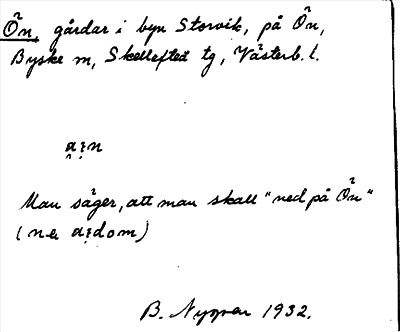 Ön, gårdar i byn Storvik, på Ön,
Byske sn, Skellefteå tg, Västerb. l.
Man säger, att man skall "ned på Ön"
B. Nyman 1932.